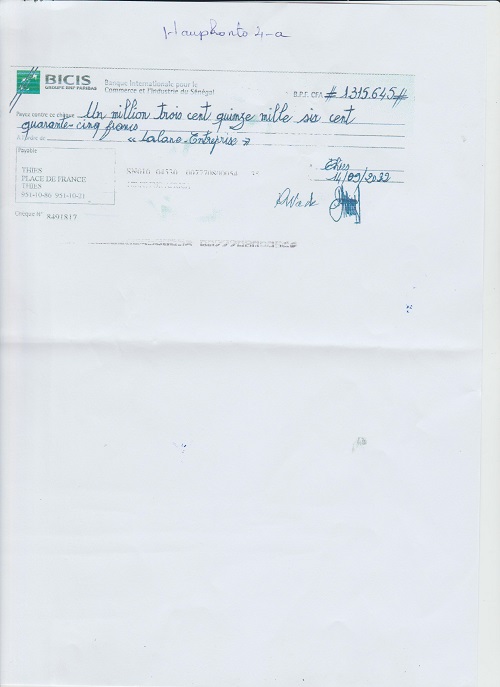 BICIS
GROUPE BNP PARIBAS
Banque Internationale pour le
Commerce et l'Industrie du Sénégal
B.P.F. CFA # 1.315.645 #
Payez contre ce chèque Un million trois cent quinze mille six cent
quarante-cinq francs
" Lalane-Entreprise "
Payable
THIES
PLACE DE FRANCE
THIES
951-10-86 951-10-21
Thies
14/09/2022
Chèque N° 8491817